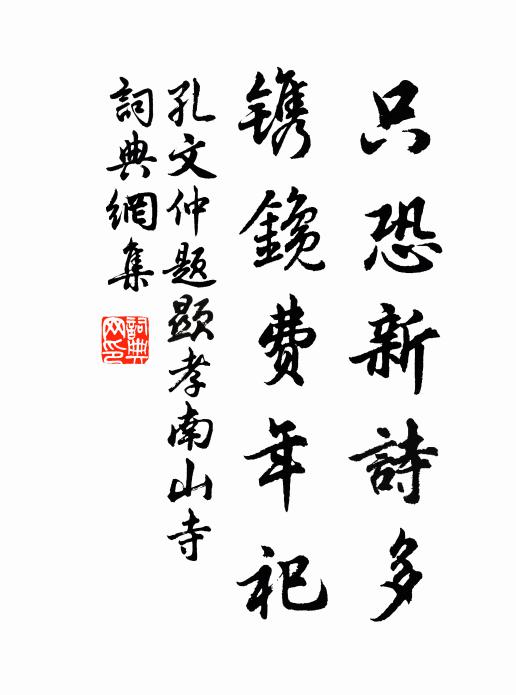 只恐新詩多
镌鑱費年祀
孔文仲題顯孝南山寺
詞典網集
詞典网印